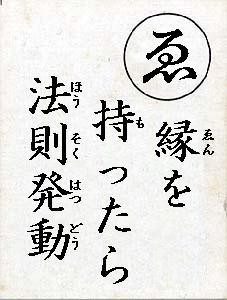 ゑ
縁を
持ったら
法則発動
ゑん
も
ほうそくはつどう